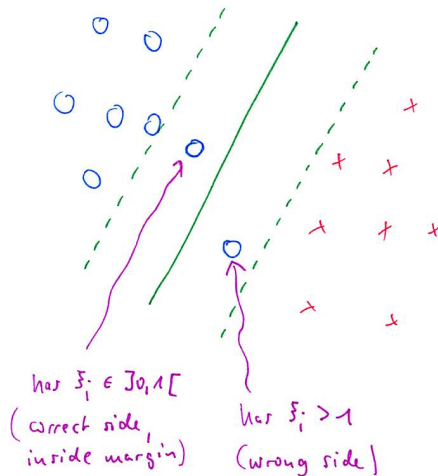 has ξᵢ ∈ ]0,1[
(correct side,
inside margin)
has ξᵢ > 1
(wrong side)